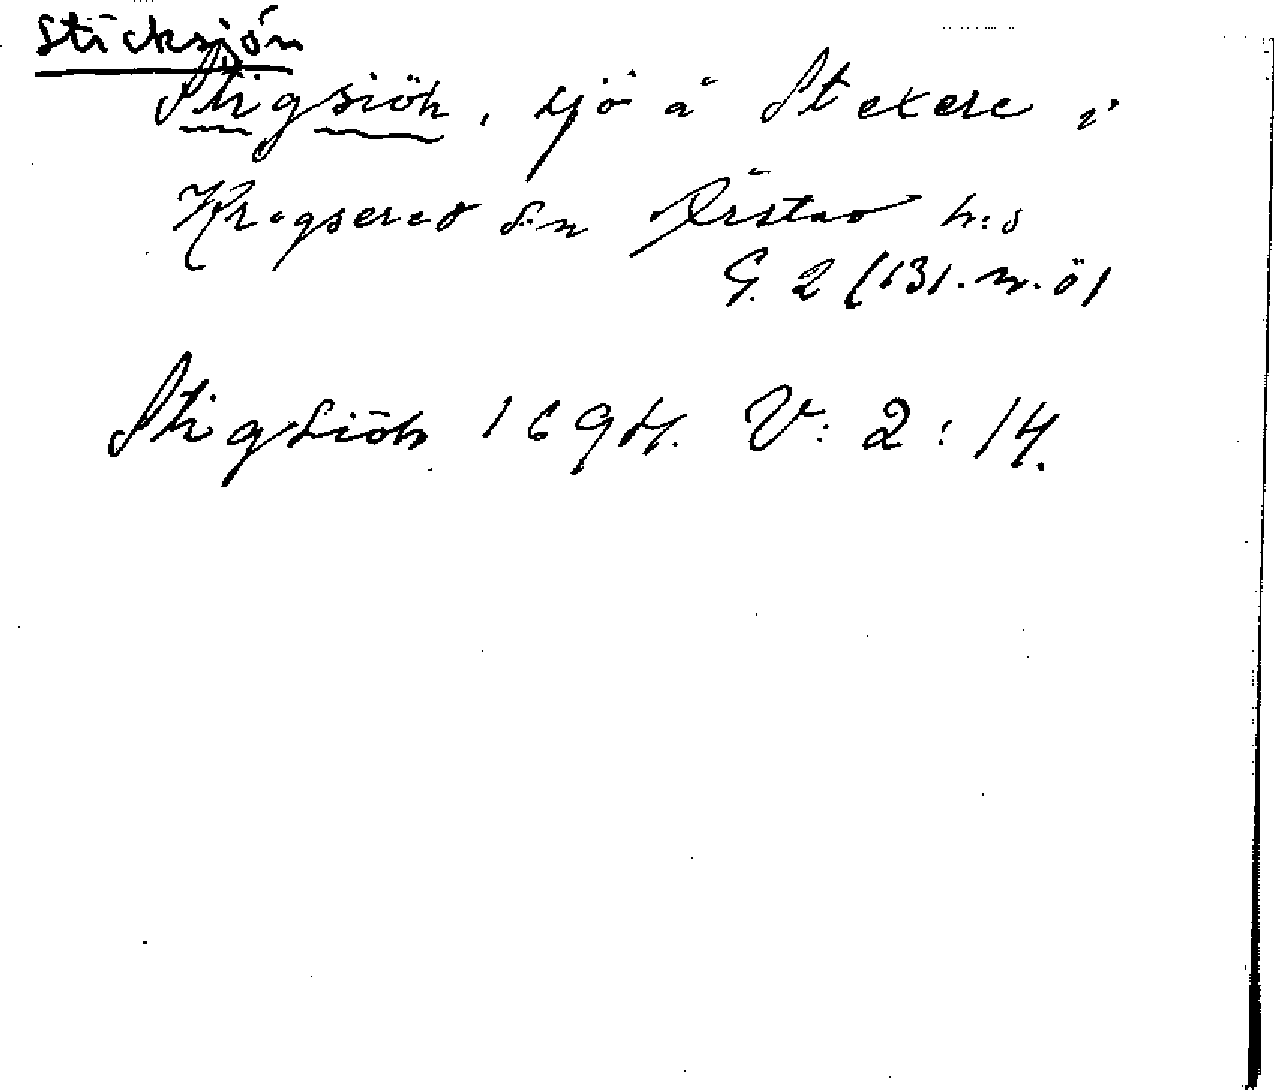 Sticksjön
Stigsiöh, sjö å Stekere i
Krogsered sn Årstad h:d
G. 2 (131. n. ö)
Stigsiöh 1694. V: 2: 14.